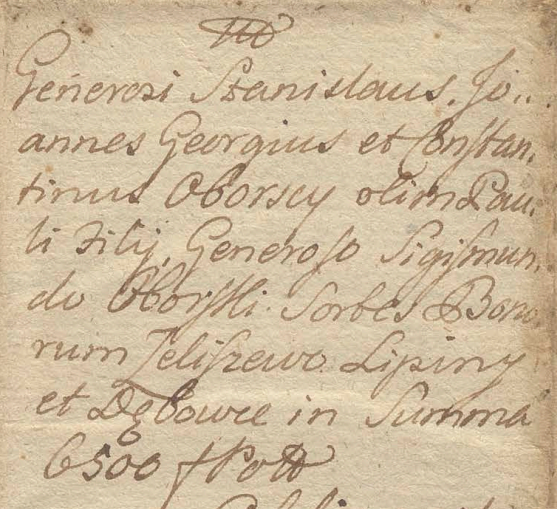 Generosi Stanislaus. Jo„
annes Georgius et Constan„
tinus Oborscy olim Pau„
li Filij, Generoso Sigismun„
do Oborski. Sortes Bono„
rum Zeliszewo Lipiny
et Dębowce in Summa
6500 f Pott